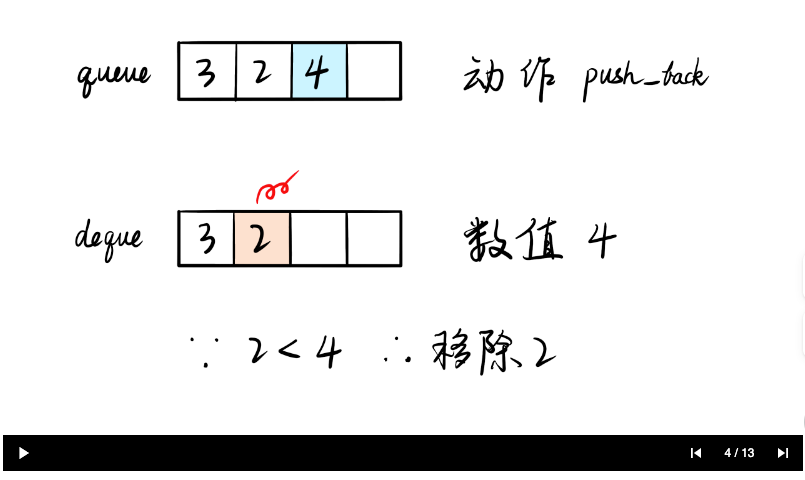 queue 3 2 4 动作 push_back
deque 3 2 数值 4
∵ 2 < 4 ∴ 移除 2
4 / 13